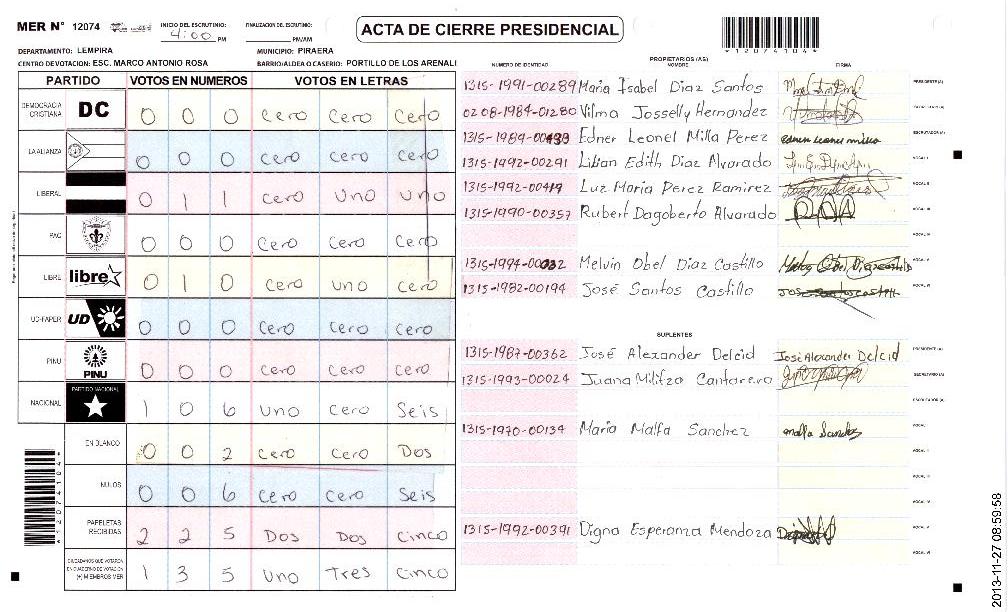 MER N° 12074 INICIO DEL ESCRUTINIO: 4:00 PM FINALIZACION DEL ESCRUTINIO: PM/AM
ACTA DE CIERRE PRESIDENCIAL
*12074104*
DEPARTAMENTO: LEMPIRA MUNICIPIO: PIRAERA
CENTRO DE VOTACION: ESC. MARCO ANTONIO ROSA BARRIO/ALDEA O CASERIO: PORTILLO DE LOS ARENALI
PARTIDO VOTOS EN NUMEROS VOTOS EN LETRAS
DEMOCRACIA CRISTIANA DC 0 0 0 Cero Cero Cero
LA ALIANZA 0 0 0 Cero Cero Cero
LIBERAL 0 1 1 Cero Uno Uno
PAC 0 0 0 Cero Cero Cero
LIBRE libre 0 1 0 Cero uno Cero
UD-FAPER UD 0 0 0 Cero Cero Cero
PINU PINU 0 0 0 Cero Cero Cero
NACIONAL PARTIDO NACIONAL 1 0 6 Uno Cero Seis
EN BLANCO 0 0 2 Cero Cero Dos
NULOS 0 0 6 Cero Cero Seis
PAPELETAS RECIBIDAS 2 2 5 Dos Dos Cinco
CIUDADANOS QUE VOTARON EN CUADERNO DE VOTACION (+) MIEMBROS MER 1 3 5 Uno Tres Cinco
*12074104*
PROPIETARIOS (AS)
NUMERO DE IDENTIDAD NOMBRE FIRMA
1315-1991-00289 Maria Isabel Diaz Santos PRESIDENTE (A)
0208-1984-01280 Vilma Josselly Hernandez SECRETARIO (A)
1315-1989-00439 Edner Leonel Milla Perez edner leonel milla ESCRUTADOR (A)
1315-1992-00291 Lilian Edith Diaz Alvarado VOCAL I
1315-1992-00419 Luz Maria Perez Ramirez VOCAL II
1315-1990-00357 Rubert Dagoberto Alvarado VOCAL III
VOCAL IV
1315-1994-00032 Melvin Obel Diaz Castillo VOCAL V
1315-1982-00194 José Santos Castillo VOCAL VI
SUPLENTES
1315-1987-00362 José Alexander Delcid José Alexander Delcid PRESIDENTE (A)
1315-1993-00024 Juana Militza Cantarero SECRETARIO (A)
ESCRUTADOR (A)
1315-1970-00134 Maria Malfa Sanchez VOCAL I
VOCAL II
VOCAL III
VOCAL IV
1315-1992-00391 Digna Esperanza Mendoza VOCAL V
VOCAL VI
2013-11-27 08:59:58